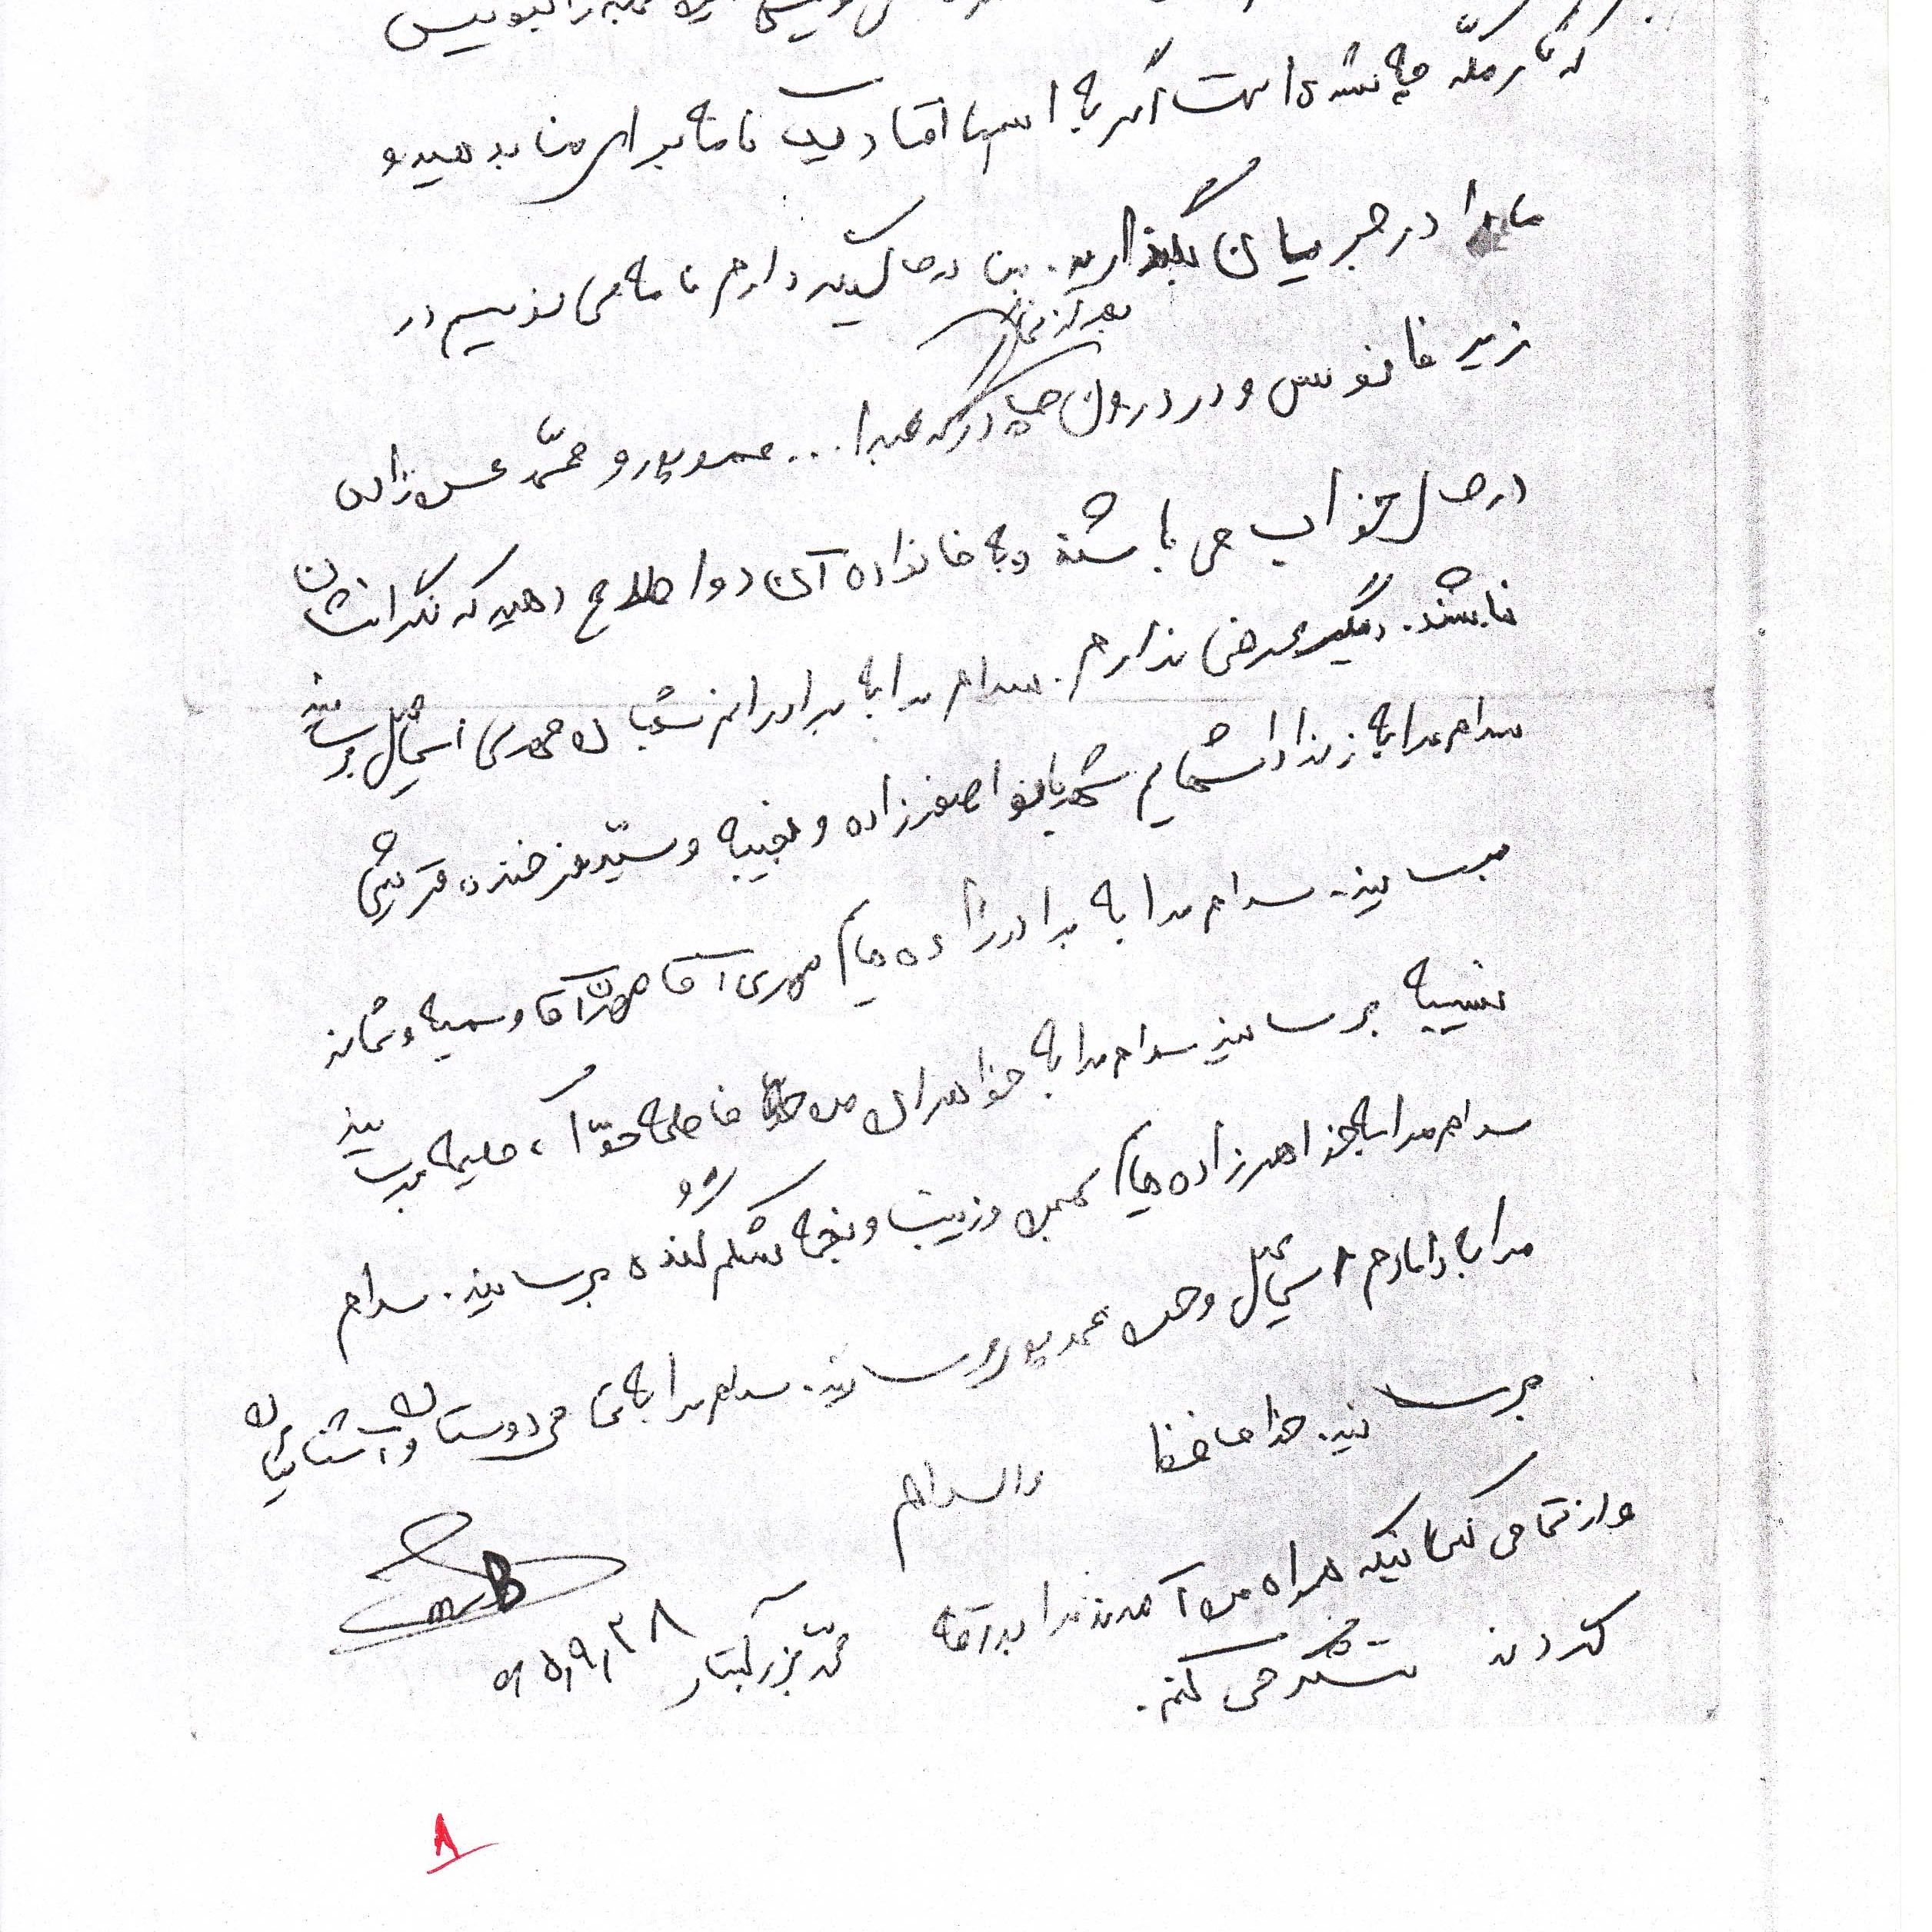 را بنویس
که کار مکه چه شده است اگر به اسمها افتاد یک نامه برای من بدهید و
ما را در جریان بگذارید. من در حالیکه دارم نامه می نویسم در
بعد از نماز
زیر فانوس و در درون چادر که عبدا... عمو پور و محمّد عسی زاده
در حال خواب می باشند و به خانواده آن دو اطلاع دهید که نگرانشان
نباشند. دیگر عرضی ندارم. سلام مرا به برادرانم شعبان مهدی اسمائیل برسانید
سلام مرا به زنداداشهایم شهربانو اصغرزاده و نجیبه و سیّد فرخنده قریشی
برسانید. سلام مرا به برادرزاده هایم مهدی آقا مهران آقا و سمیه و سمانه
نسیبه برسانید سلام مرا به خواهران من فاطمه حوّا، حلیمه برسانید
سلام مرا به خواهرزاده هایم و زینب و نجمه شکم گنده برسانید. سلام
مرا به دامادم اسمائیل و حسن عمو پور برسانید. سلام مرا به تمامی دوستان و آشنایان
برسانید. خداحافظ والسلام
و از تمامی کسانیکه همراه من آمدند مرا بدرقه
کردند تشکر می کنم.
محمّد بزرگتبار ۶۵٫۹٫۲۸
۸